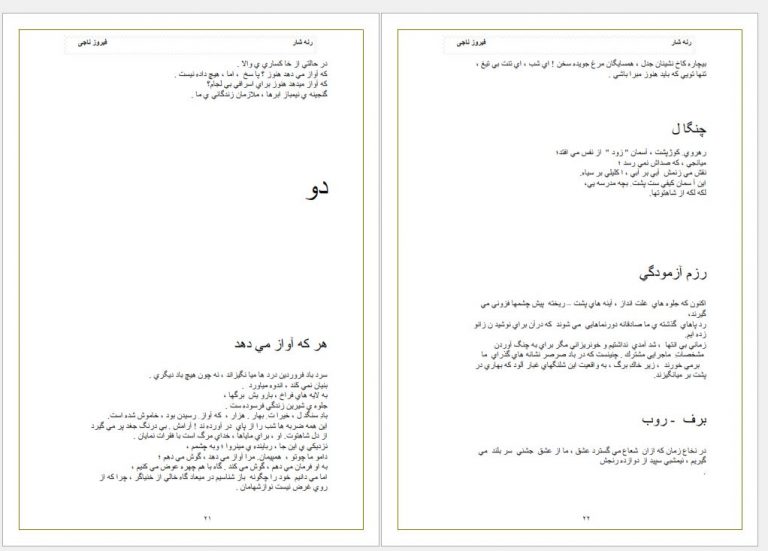 رنه شار
فیروز ناجی
در حالتي از خا كساري ي والا .
كه آواز مي دهد هنوز ؟ پا سخ ، اما ، هيچ داده نيست .
كه آواز ميدهد هنوز براي اسرافي بي لجام؟
گنجينه ي نيمباز ابرها ، ملازمان زندگاني ي ما .
دو
هر كه آواز مي دهد
سرد باد فروردين درد ها ميا نگيزاند ، نه چون هيچ باد ديگري .
بنيان نمي كند ، اندوه مياورد .
به لايه هاي فراخ ، بارو يش برگها ،
جلوه ي شيرين زندگي فرسوده ست .
باد سنگد ل ، خيرا ت. بهار . هزار ، كه آواز . رسيدن بود ، خاموش شده است.
اين همه ضربه ها شب را از پاي در آورده ند ! آرامش . بي درنگ جغد پر مي گيرد
از دل شاهتوت. او ، براي ماياها ، خداي مرگ است با فقرات نمايان .
نزديكي ي اين جا ، رباينده ي مينروا ! وبه چشمم ،
دامو ما چوتو ، همپيمان. مرا آواز مي دهد ، گوش مي دهم ؛
به او فرمان مي دهم ، گوش مي كند . گاه با هم چهره عوض مي كنيم ،
اما مي دانيم خود را چگونه باز شناسيم در ميعاد گاه خالي از خنياگر ، چرا كه از
روي غرض نيست نوازشهامان .
۲۱
رنه شار
فیروز ناجی
بيچاره كاخ نشينان جدل ، همسايگان مرغ جويده سخن ! اي شب ، اي تنت بي تيغ ،
تنها تويي كه بايد هنوز مبرا باشي .
چنگا ل
رهروي. كوژپشت ، آسمان " زود " از نفس مي افتد؛
ميانجي ، كه صداش نمي رسد ؛
نقش مي زنمش آبي بر آبي ، ا كليلي بر سياه.
اين آ سمان كيفي ست پشت. بچه مدرسه يي،
لكه لكه از شاهتوتها.
رزم آزمودگي
اكنون كه جلوه هاي غلت انداز ، آينه هاي پشت – ريخته پيش چشمها فزوني مي
گيرند،
رد پاهاي گذشته ي ما صادقانه دورنماهايي مي شوند كه درآن براي نوشيد ن زانو
زده ايم.
زماني بي انتها ، شد آمدي نداشتيم و خونريزاني مگر براي به چنگ آوردن
مشخصات ماجرايي مشترك . چنينست كه در باد صرصر نشانه هاي گذراي ما
برمي خورند ، زير خاك برگ ، به واقعيت اين شلنگهاي غبار آلود كه بهاري در
پشت بر ميانگيزند.
برف - روب
در نخاع زمان كه ازان شعاع مي گسترد عشق ، ما از عشق جشني سر بلند مي
گيريم ، نيمشبي سپيد از دوازده رنجش
.
۲۲